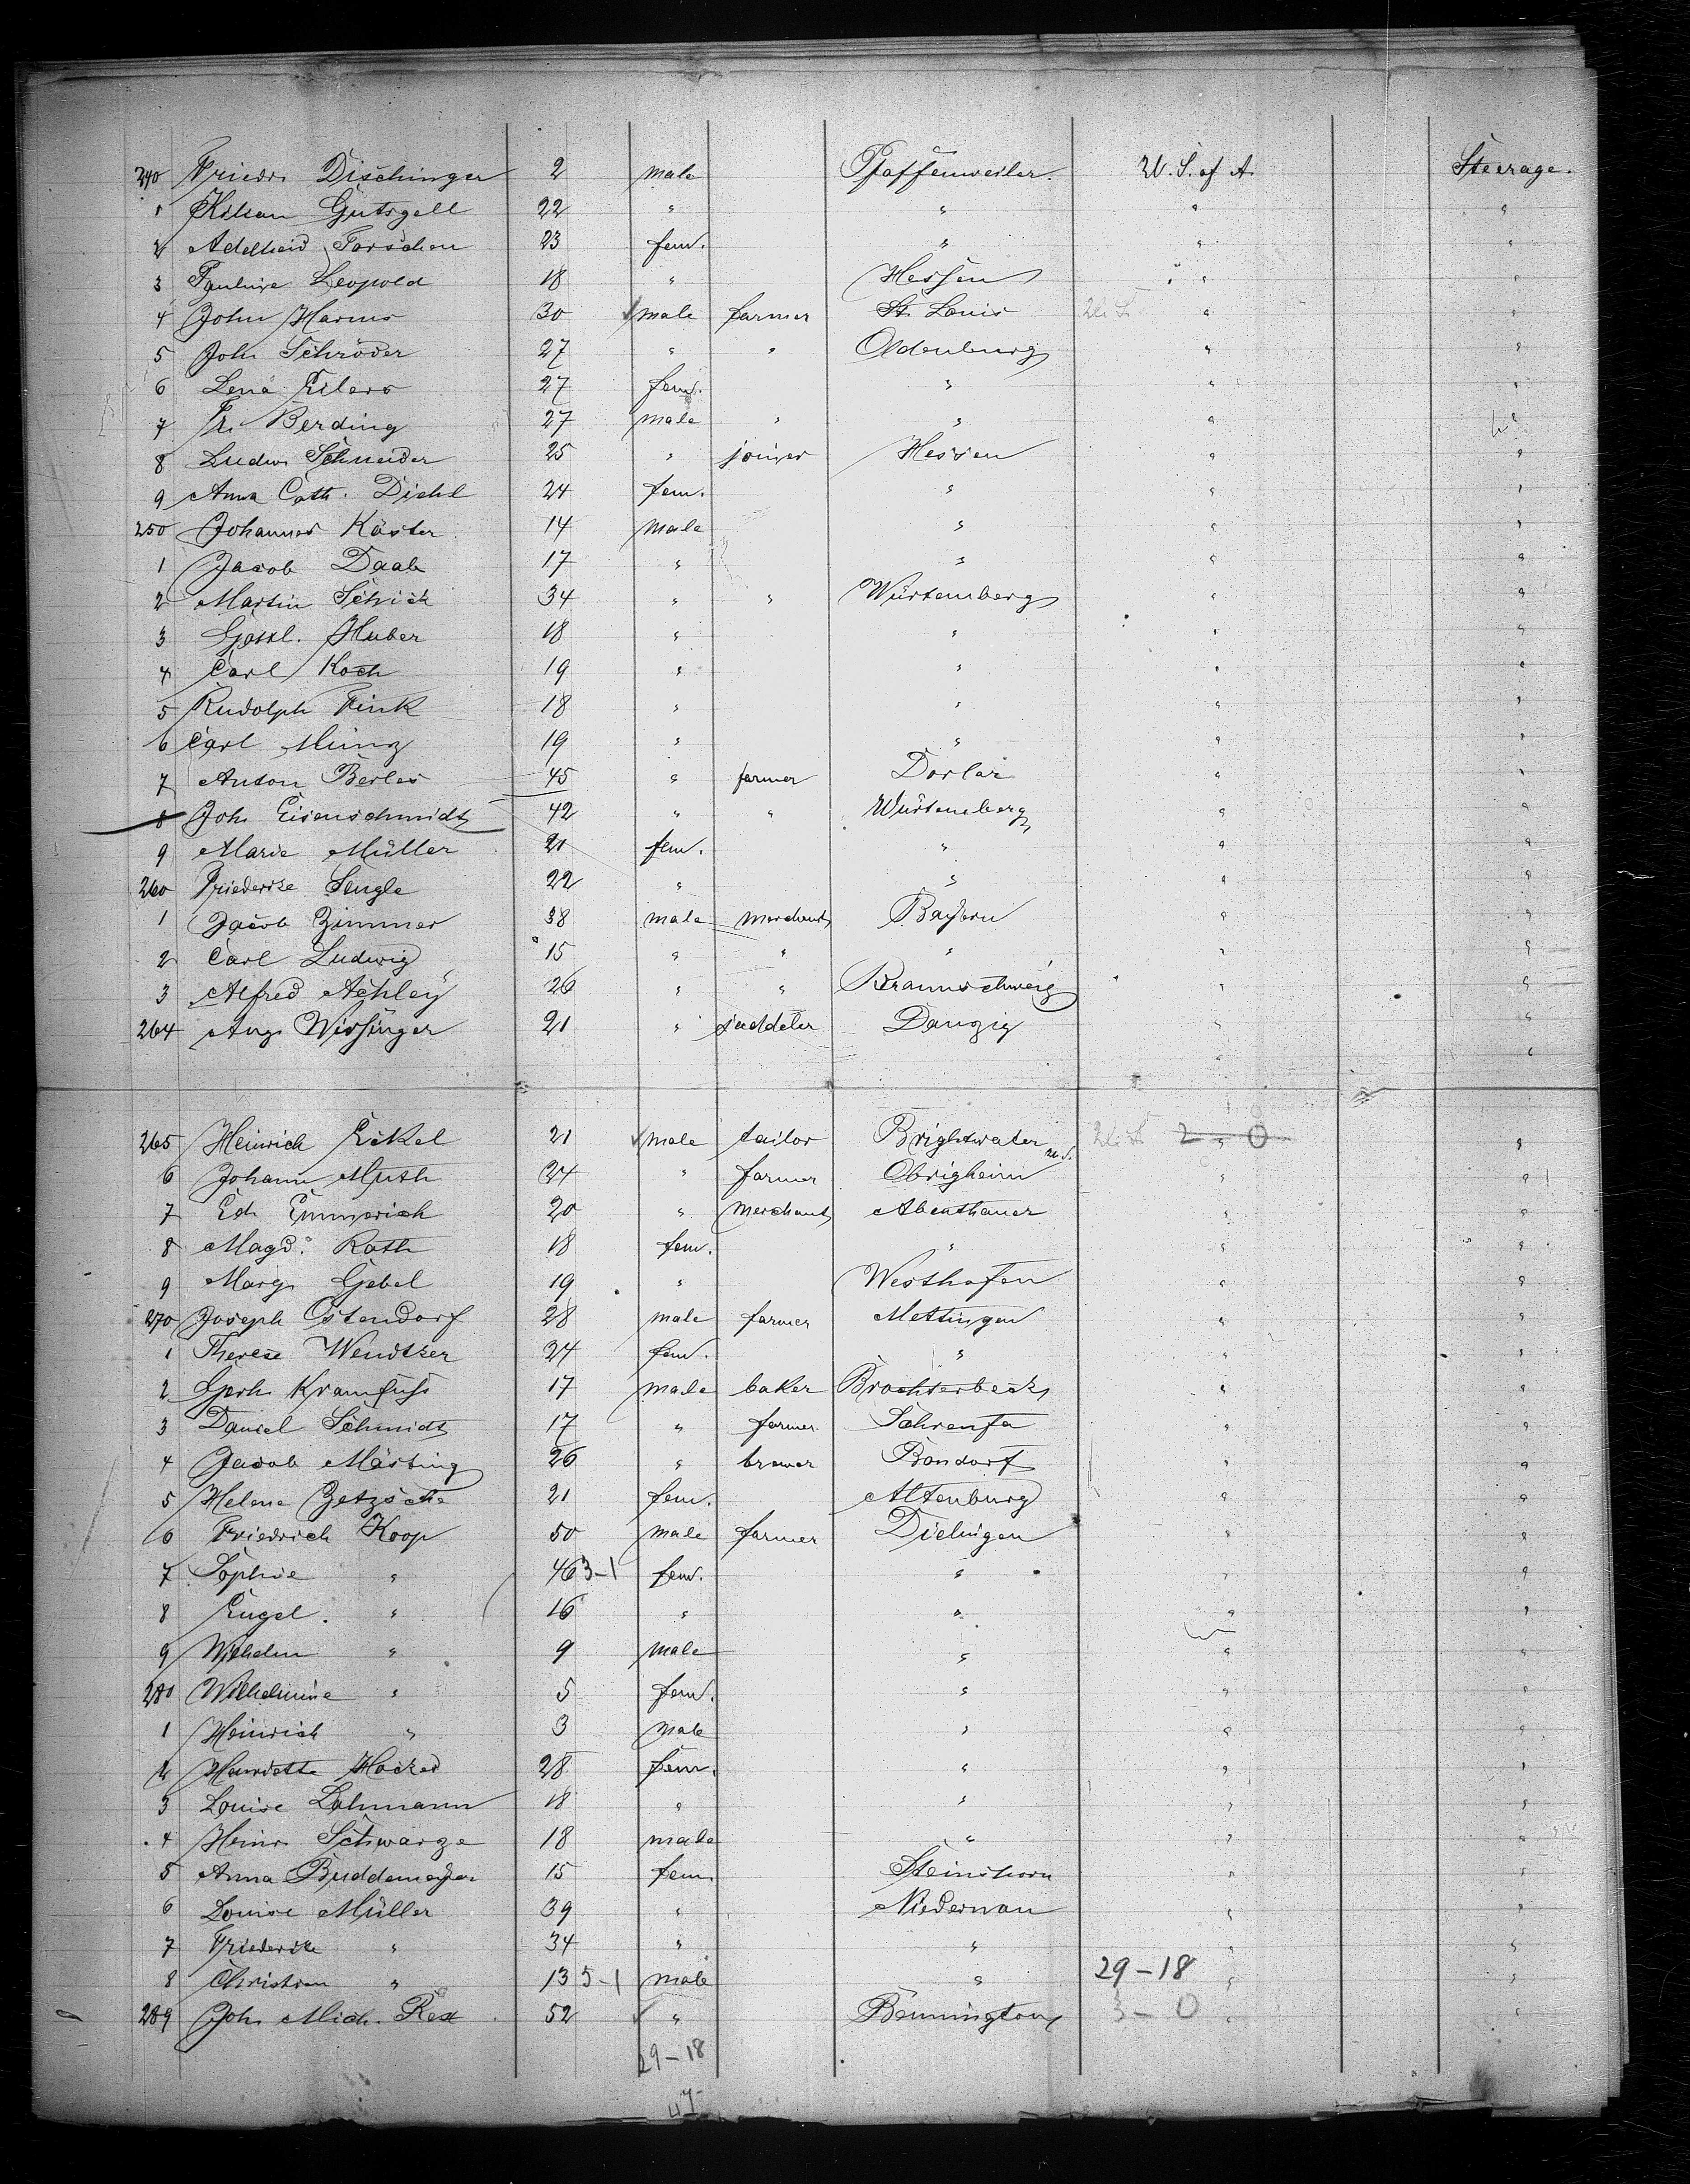 240 Friedr. Dischinger 2 male Pfaffenweiler. U. S. of A. Steerage.
1 Kilian Gutsgell 22 " " " "
2 Adelheid 23 fem. " " "
3 Pauline Leopold 18 " Hessen " "
4 John Harms 30 male farmer St. Louis U. S. " "
5 Joh. Schröder 27 " " Oldenburg " "
6 Lena Eilers 27 fem. " " "
7 Fr. Berding 27 male " " " "
8 Ludw. Schneider 25 " joiner Hessen " "
9 Anna Cath. Diehl 24 fem. " " "
250 Johannes Köster 14 male " " "
1 Jacob Daab 17 " " " "
2 Martin Schick 34 " " Würtemberg " "
3 Huber 18 " " " "
4 Carl Koch 19 " " " "
5 Rudolph Fink 18 " " " "
6 Carl Münz 19 " " " "
7 Anton Berles 45 " farmer Dorlar " "
8 Joh. Eisenschmidt 42 " " Würtemberg " "
9 Marie Müller 21 fem. " " "
260 Friederike Sengle 22 " " " "
1 Jacob Zimmer 38 male merchant Bayern " "
2 Carl Ludwig 15 " " " " "
3 Alfred Achley 26 " " Braunschweig " "
264 Aug. Wissinger 21 " Danzig " "
" "
265 Heinrich Eckel 21 male tailor Brightwater U. S. 2 " 0 "
6 Johann Muth 24 " farmer Obrigheim " "
7 Ed. Emmerich 20 " merchant Abenthauer " "
8 Magd. Roth 18 fem. " " "
9 Marg. Gebel 19 " Westhofen " "
270 Joseph Ostendorf 28 male farmer Mettingen " "
1 Therese Wendtker 24 fem. " " "
2 Gerh. Kramfuß 17 male baker Brochterbeck " "
3 Daniel Schmidt 17 " farmer " "
4 Jacob Mästing 26 " brewer Bondorf " "
5 Helene Zetzsche 21 fem. Altenburg " "
6 Friedrich Koop 50 male farmer Dielingen " "
7 Sophie " 46 3-1 fem. " " "
8 Engel. " 16 " " " "
9 Wilhelm " 9 male " " "
280 Wilhelmine " 5 fem. " " "
1 Heinrich " 3 male " " "
2 Henriette 28 fem. " " "
3 Louise Lahmann 18 " " " "
4 Heinr. Schwarze 18 male " " "
5 Anna Buddemeyer 15 fem. Steinshorn " "
6 Louise Müller 39 " Niedernau " "
7 Friederike " 34 " " " "
8 Christian " 13 5-1 male " 29-18 " "
289 Joh. Mich. Rex 52 " Bennington 3-0 " "
29-18
47